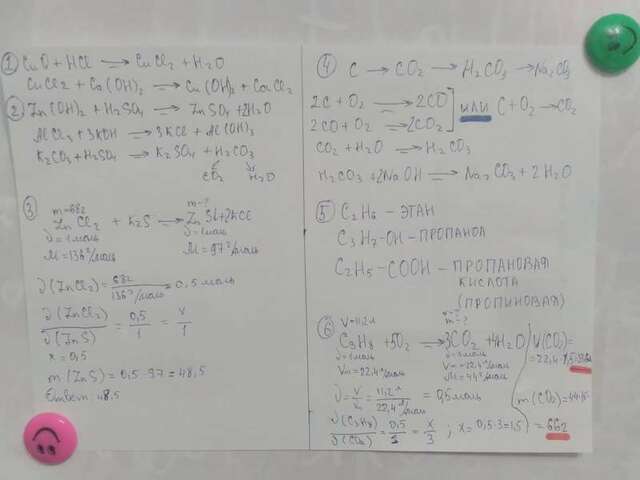 ① CuO + HCl ⇌ CuCl2 + H2O
CuCl2 + Ca(OH)2 ⇌ Cu(OH)2 + CaCl2
② Zn(OH)2 + H2SO4 ⇌ ZnSO4 + 2H2O
AlCl3 + 3KOH ⇌ 3KCl + Al(OH)3
K2CO3 + H2SO4 ⇌ K2SO4 + H2CO3
CO2 H2O
③ m=68г m-?
ZnCl2 + K2S ⇌ ZnS↓ + 2KCl
ν=1моль ν=1моль
M=136г/моль M=97г/моль
ν(ZnCl2) = 68г/136г/моль = 0,5 моль
ν(ZnCl2)/ν(ZnS) = 0,5/1 = x/1
x = 0,5
m(ZnS) = 0,5 · 97 = 48,5
Ответ: 48,5
④ C → CO2 → H2CO3 → Na2CO3
2C + O2 ⇌ 2CO
2CO + O2 ⇌ 2CO2
ИЛИ C + O2 → CO2
CO2 + H2O ⇌ H2CO3
H2CO3 + 2NaOH ⇌ Na2CO3 + 2H2O
⑤ C2H6 – ЭТАН
C3H7-OH – ПРОПАНОЛ
C2H5 – COOH – ПРОПАНОВАЯ
КИСЛОТА
(ПРОПИНОВАЯ)
⑥ V=11,2л m-?
C3H8 + 5O2 ⇌ 3CO2 + 4H2O
ν=1моль ν=3моль
Vm=22,4г/моль Vm=22,4г/моль
M=44г/моль
ν = V/Vm = 11,2л/22,4л/моль = 0,5 моль
ν(C3H8)/ν(CO2) = 0,5/1 = x/3 ; x = 0,5·3 = 1,5
V(CO2) =
= 22,4 ·
m(CO2) = 44 ·
= 66г